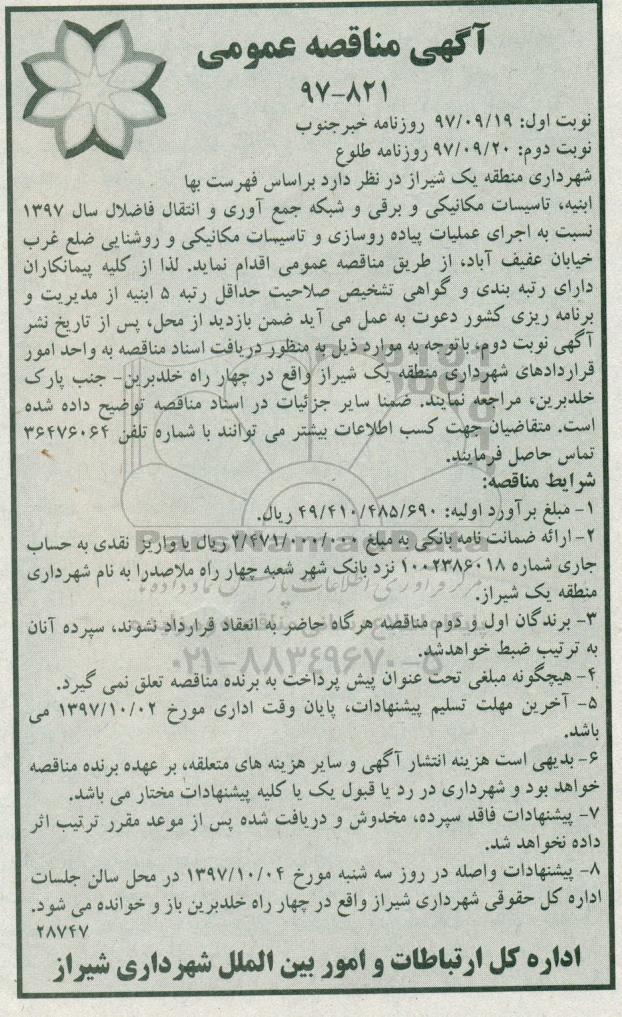 آگهی مناقصه عمومی
۹۷-۸۲۱
نوبت اول: ۹۷/۰۹/۱۹ روزنامه خبرجنوب
نوبت دوم: ۹۷/۰۹/۲۰ روزنامه طلوع
شهرداری منطقه یک شیراز در نظر دارد براساس فهرست بها
ابنیه، تاسیسات مکانیکی و برقی و شبکه جمع آوری و انتقال فاضلال سال ۱۳۹۷
نسبت به اجرای عملیات پیاده روسازی و تاسیسات مکانیکی و روشنایی ضلع غرب
خیابان عفیف آباد، از طریق مناقصه عمومی اقدام نماید. لذا از کلیه پیمانکاران
دارای رتبه بندی و گواهی تشخیص صلاحیت حداقل رتبه ۵ ابنیه از مدیریت و
برنامه ریزی کشور دعوت به عمل می آید ضمن بازدید از محل، پس از تاریخ نشر
آگهی نوبت دوم، باتوجه به موارد ذیل به منظور دریافت اسناد مناقصه به واحد امور
قراردادهای شهرداری منطقه یک شیراز واقع در چهار راه خلدبرین- جنب پارک
خلدبرین، مراجعه نمایند. ضمنا سایر جزئیات در اسناد مناقصه توضیح داده شده
است. متقاضیان جهت کسب اطلاعات بیشتر می توانند با شماره تلفن ۳۶۴۷۶۰۶۴
تماس حاصل فرمایند.
شرایط مناقصه:
۱- مبلغ برآورد اولیه: ۴۹/۴۱۰/۴۸۵/۶۹۰ ریال.
۲- ارائه ضمانت نامه بانکی به مبلغ ۲/۴۷۱/۰۰۰/۰۰۰ ریال یا واریز نقدی به حساب
جاری شماره ۱۰۰۲۳۸۶۰۱۸ نزد بانک شهر شعبه چهار راه ملاصدرا به نام شهرداری
منطقه یک شیراز.
۳- برندگان اول و دوم مناقصه هرگاه حاضر به انعقاد قرارداد نشوند، سپرده آنان
به ترتیب ضبط خواهدشد.
۴- هیچگونه مبلغی تحت عنوان پیش پرداخت به برنده مناقصه تعلق نمی گیرد.
۵- آخرین مهلت تسلیم پیشنهادات، پایان وقت اداری مورخ ۱۳۹۷/۱۰/۰۲ می
باشد.
۶- بدیهی است هزینه انتشار آگهی و سایر هزینه های متعلقه، بر عهده برنده مناقصه
خواهد بود و شهرداری در رد یا قبول یک یا کلیه پیشنهادات مختار می باشد.
۷- پیشنهادات فاقد سپرده، مخدوش و دریافت شده پس از موعد مقرر ترتیب اثر
داده نخواهد شد.
۸- پیشنهادات واصله در روز سه شنبه مورخ ۱۳۹۷/۱۰/۰۴ در محل سالن جلسات
اداره کل حقوقی شهرداری شیراز واقع در چهار راه خلدبرین باز و خوانده می شود.
۲۸۷۴۷
اداره کل ارتباطات و امور بین الملل شهرداری شیراز
ParsNamadData
۰۲۱-۸۸۳۴۹۶۷۰-۵